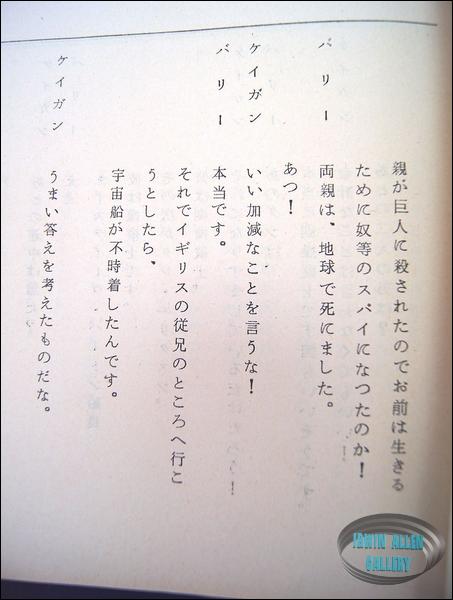 親が巨人に殺されたのでお前は生きる
ために奴等のスパイになつたのか!
バリー 両親は、地球で死にました。
あつ!
ケイガン いい加減なことを言うな!
バリー 本当です。
それでイギリスの従兄のところへ行こ
うとしたら、
宇宙船が不時着したんです。
ケイガン うまい答えを考えたものだな。
IRWIN ALLEN
GALLERY